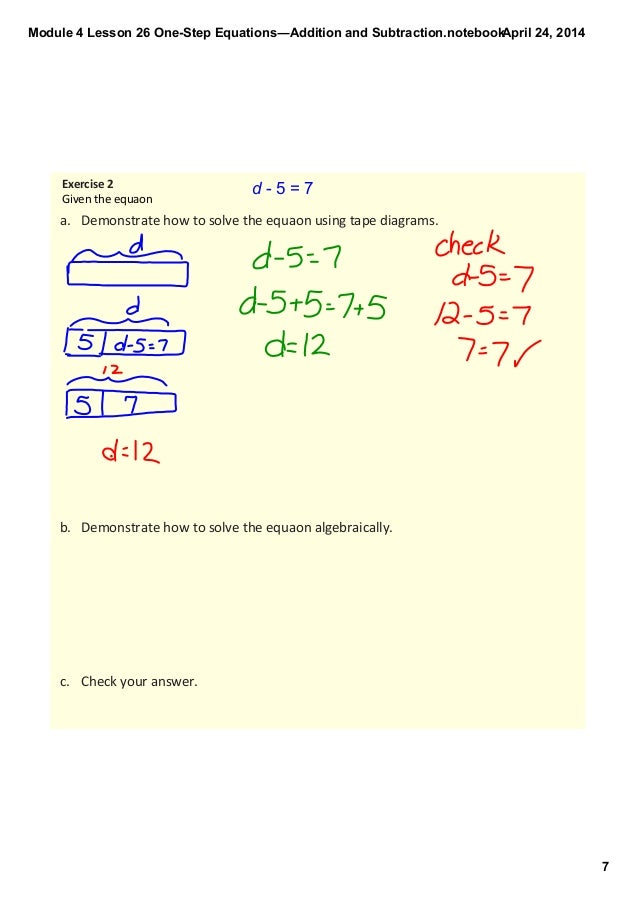 Module 4 Lesson 26 One-Step Equations—Addition and Subtraction.notebook April 24, 2014
Exercise 2
Given the equaon
d - 5 = 7
a. Demonstrate how to solve the equaon using tape diagrams.
d
d
5 d-5=7
12
5 7
d=12
d-5=7
d-5+5=7+5
d=12
check
d-5=7
12-5=7
7=7✓
b. Demonstrate how to solve the equaon algebraically.
c. Check your answer.
7